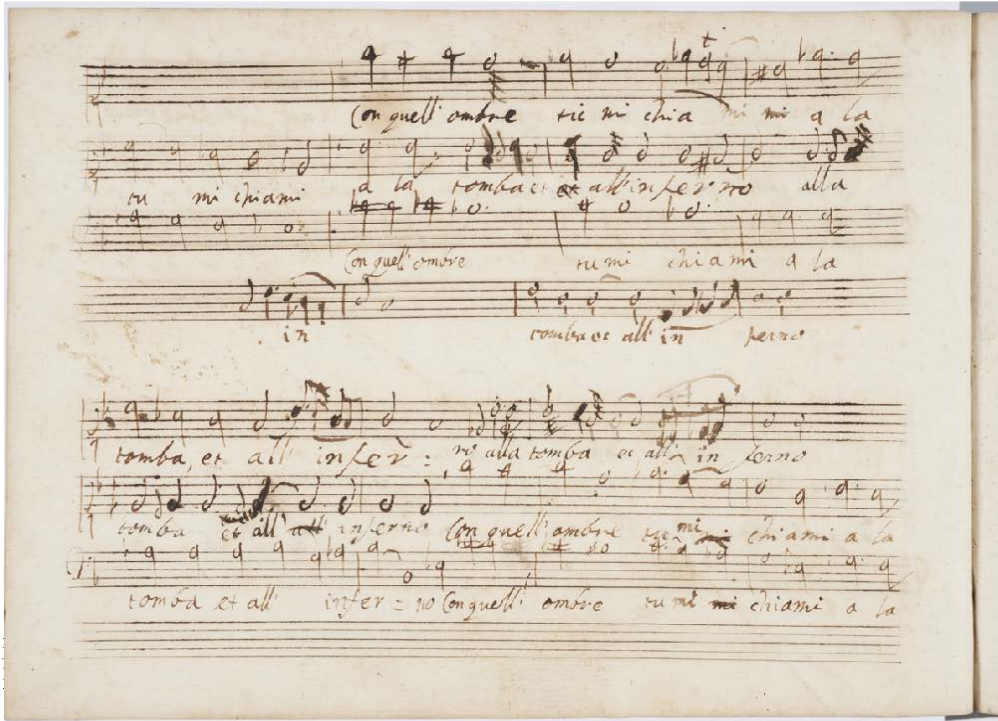 Con quell' ombre tu mi chia mi mi a la
tu mi chiami a la tomba et et all' inferno alla
Con quell' ombre tu mi chiami a la
in tomba et all' in ferno
tomba, et all' infer: no alla tomba et all' in ferno
tomba et all' all' inferno Con quell' ombre tu mi mi chiami a la
tomba et all' infer = no Con quell' ombre tu mi mi chiami a la